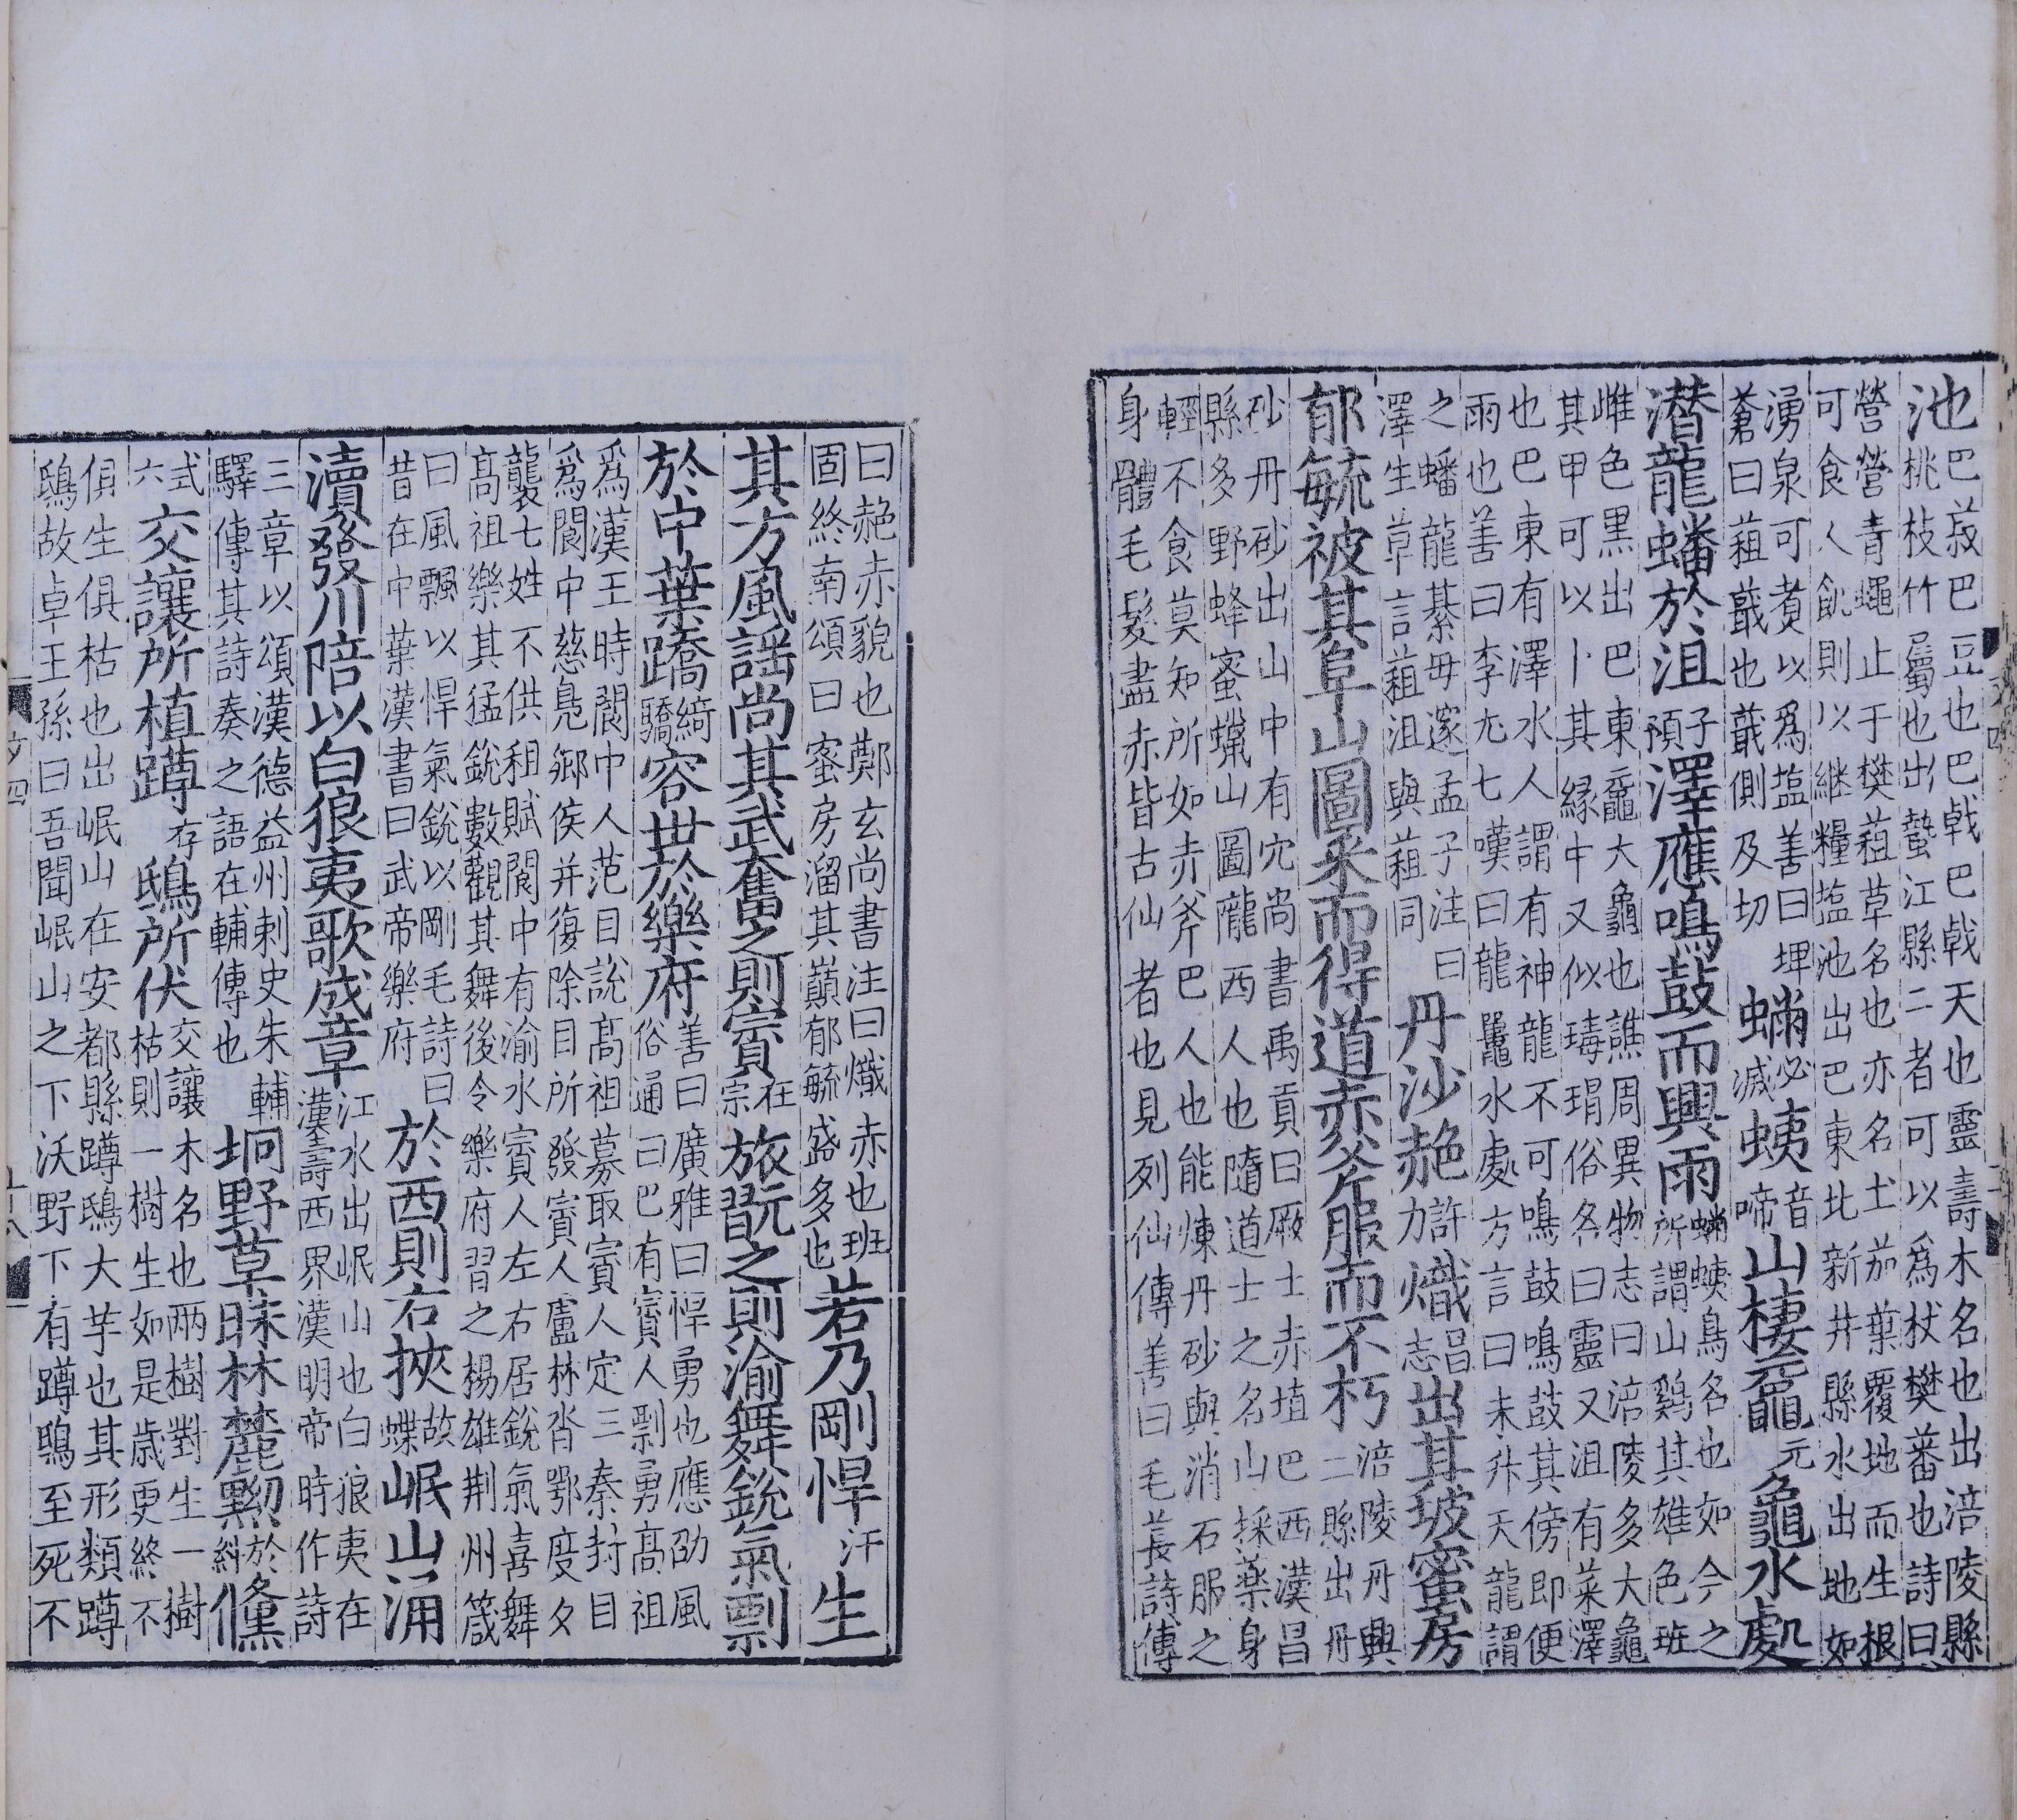 池巴菽巴豆也巴戟巴戟天也靈壽木名也出涪陵縣
桃枝竹屬也出蟄江縣二者可以爲杖樊蕃也詩曰
營營青蠅止于樊蒩草名也亦名土茄葉覆地而生根
可食人飢則以継糧塩池出巴東北新井縣水出地如
湧泉可煑以爲塩善曰埤
蒼曰蒩蕺也蕺側及切
蟎必滅蛦音啼山棲黿元龜水處
潜龍蟠於沮子預澤應鳴鼓而興雨蟎蛦鳥名也如今之
所謂山鷄其雄色班
雌色黑出巴東黿大龜也譙周異物志曰涪陵多大龜
其甲可以卜其縁中又似瑇瑁俗名曰靈又沮有菜澤
也巴東有澤水人謂有神龍不可鳴鼓鳴鼓其傍即便
雨也善曰李尤七嘆曰龍鼉水處方言曰未升天龍謂
之蟠龍綦毋邃孟子注曰
澤生草言蒩沮與蒩同
丹沙赩許力熾昌志出其坡蜜房
郁毓被其阜山圖采而得道赤斧服而不朽涪陵丹興
二縣出丹
砂丹砂出山中有穴尚書禹貢曰厥土赤埴巴西漢昌
縣多野蜂蜜蠟山圖隴西人也隨道士之名山採藥身
輕不食莫知所如赤斧巴人也能煉丹砂與消石服之
身體毛髮盡赤皆古仙者也見列仙傳善曰毛萇詩傳
曰赩赤貌也鄭玄尚書注曰熾赤也班
固終南頌曰蜜房溜其巔郁毓盛多也
若乃剛悍汗生
其方風謡尚其武奮之則賨在宗旅翫之則渝舞銳氣剽
於中葉蹻綺驕容世於樂府善曰廣雅曰悍勇也應劭風
俗通曰巴有賨人剽勇髙祖
爲漢王時閬中人范目說髙祖募取賨人定三秦封目
爲閬中慈鳧鄉侯并復除目所發賨人盧林沓鄂度夕
襲七姓不供租賦閬中有渝水賨人左右居銳氣喜舞
髙祖樂其猛銳數觀其舞後令樂府習之楊雄荆州箴
曰風飄以悍氣銳以剛毛詩曰
昔在中葉漢書曰武帝樂府
於西則右挾故蝶岷山涌
瀆發川陪以白狼夷歌成章江水出岷山也白狼夷在
漢壽西界漢明帝時作詩
三章以頌漢德益州刺史朱輔
驛傳其詩奏之語在輔傳也
坰野草昧林麓黝於糾儵
式六交讓所植蹲存鴟所伏交讓木名也兩樹對生一樹
枯則一樹生如是歳更終不
俱生俱枯也出岷山在安都縣蹲鴟大芋也其形類蹲
鴟故卓王孫曰吾聞岷山之下沃野下有蹲鴟至死不